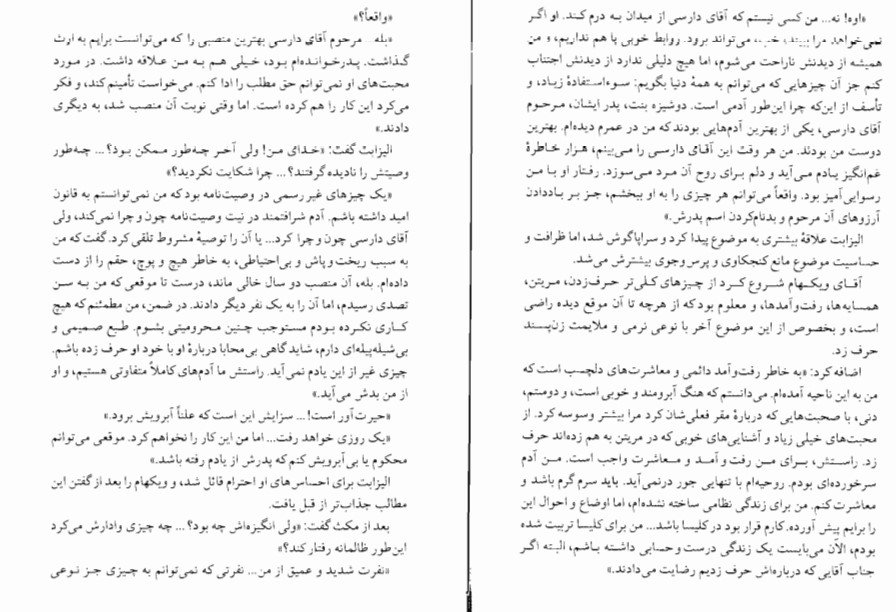 «اوه! نه... من کسی نیستم که آقای دارسی از میدان به درم کند. او اگر
نمی‌خواهد مرا ببیند، خب، می‌تواند برود. روابط خوبی با هم نداریم، و من
همیشه از دیدنش ناراحت می‌شوم، اما هیچ دلیلی ندارد از دیدنش اجتناب
کنم جز آن چیزهایی که می‌توانم به همهٔ دنیا بگویم: سوءاستفادهٔ زیاد، و
تأسف از این‌که چرا این‌طور آدمی است. دوشیزه بنت، پدر ایشان، مرحوم
آقای دارسی، یکی از بهترین آدم‌هایی بودند که من در عمرم دیده‌ام. بهترین
دوست من بودند. من هر وقت این آقای دارسی را می‌بینم، هزار خاطرهٔ
غم‌انگیز یادم می‌آید و دلم برای روح آن مرد می‌سوزد. رفتار او با من
رسوایی‌آمیز بود. واقعاً می‌توانم هر چیزی را به او ببخشم، جز بر باددادن
آرزوهای آن مرحوم و بدنام‌کردن اسم پدرش.»
الیزابت علاقهٔ بیشتری به موضوع پیدا کرد و سراپاگوش شد، اما ظرافت و
حساسیت موضوع مانع کنجکاوی و پرس‌وجوی بیشترش می‌شد.
آقای ویکهام شروع کرد از چیزهای کلی‌تر حرف‌زدن، مریتن،
همسایه‌ها، رفت‌وآمدها، و معلوم بود که از هرچه تا آن موقع دیده راضی
است، و بخصوص از این موضوع آخر با نوعی نرمی و ملایمت زن‌پسند
حرف زد.
اضافه کرد: «به خاطر رفت‌وآمد دائمی و معاشرت‌های دلچسب است که
من به این ناحیه آمده‌ام. می‌دانستم که هنگ آبرومند و خوبی است، و دوستم،
دنی، با صحبت‌هایی که دربارهٔ مقر فعلی‌شان کرد مرا بیشتر وسوسه کرد. از
محبت‌های خیلی زیاد و آشنایی‌های خوبی که در مریتن به هم زده‌اند حرف
زد. راستش، برای من رفت و آمد و معاشرت واجب است. من آدم
سرخورده‌ای بودم. روحیه‌ام با تنهایی جور درنمی‌آید. باید سرم گرم باشد و
معاشرت کنم. من برای زندگی نظامی ساخته نشده‌ام، اما اوضاع و احوال این
را برایم پیش آورده. کارم قرار بود در کلیسا باشد... من برای کلیسا تربیت شده
بودم، الآن می‌بایست یک زندگی درست و حسابی داشته باشم، البته اگر
جناب آقایی که درباره‌اش حرف زدیم رضایت می‌دادند.»
«واقعاً؟»
«بله... مرحوم آقای دارسی بهترین منصبی را که می‌توانست برایم به ارث
گذاشت. پدرخوانده‌ام بود، خیلی هم به من علاقه داشت. در مورد
محبت‌های او نمی‌توانم حق مطلب را ادا کنم. می‌خواست تأمینم کند، و فکر
می‌کرد این کار را هم کرده است. اما وقتی نوبت آن منصب شد، به دیگری
دادند.»
الیزابت گفت: «خدای من! ولی آخر چه‌طور ممکن بود؟... چه‌طور
وصیتش را نادیده گرفتند؟... چرا شکایت نکردید؟»
«یک چیزهای غیر رسمی در وصیت‌نامه بود که من نمی‌توانستم به قانون
امید داشته باشم. آدم شرافتمند در نیت وصیت‌نامه چون و چرا نمی‌کند، ولی
آقای دارسی چون و چرا کرد... یا آن را توصیهٔ مشروط تلقی کرد. گفت که من
به سبب ریخت و پاش و بی‌احتیاطی، به خاطر هیچ و پوچ، حقم را از دست
داده‌ام. بله، آن منصب دو سال خالی ماند، درست تا موقعی که من به سن
تصدی رسیدم، اما آن را به یک نفر دیگر دادند. در ضمن، من مطمئنم که هیچ
کاری نکرده بودم مستوجب چنین محرومیتی بشوم. طبع صمیمی و
بی‌شیله‌پیله‌ای دارم، شاید گاهی بی‌محابا دربارهٔ او با خود او حرف زده باشم.
چیزی غیر از این یادم نمی‌آید. راستش ما آدم‌های کاملاً متفاوتی هستیم، و او
از من بدش می‌آید.»
«حیرت‌آور است!... سزایش این است که علناً آبرویش برود.»
«یک روزی خواهد رفت... اما من این کار را نخواهم کرد. موقعی می‌توانم
محکوم یا بی‌آبرویش کنم که پدرش از یادم رفته باشد.»
الیزابت برای احساس‌های او احترام قائل شد، و ویکهام را بعد از گفتن این
مطالب جذاب‌تر از قبل یافت.
بعد از مکث گفت: «ولی انگیزه‌اش چه بود؟... چه چیزی وادارش می‌کرد
این‌طور ظالمانه رفتار کند؟»
«نفرت شدید و عمیق از من... نفرتی که نمی‌توانم به چیزی جز نوعی